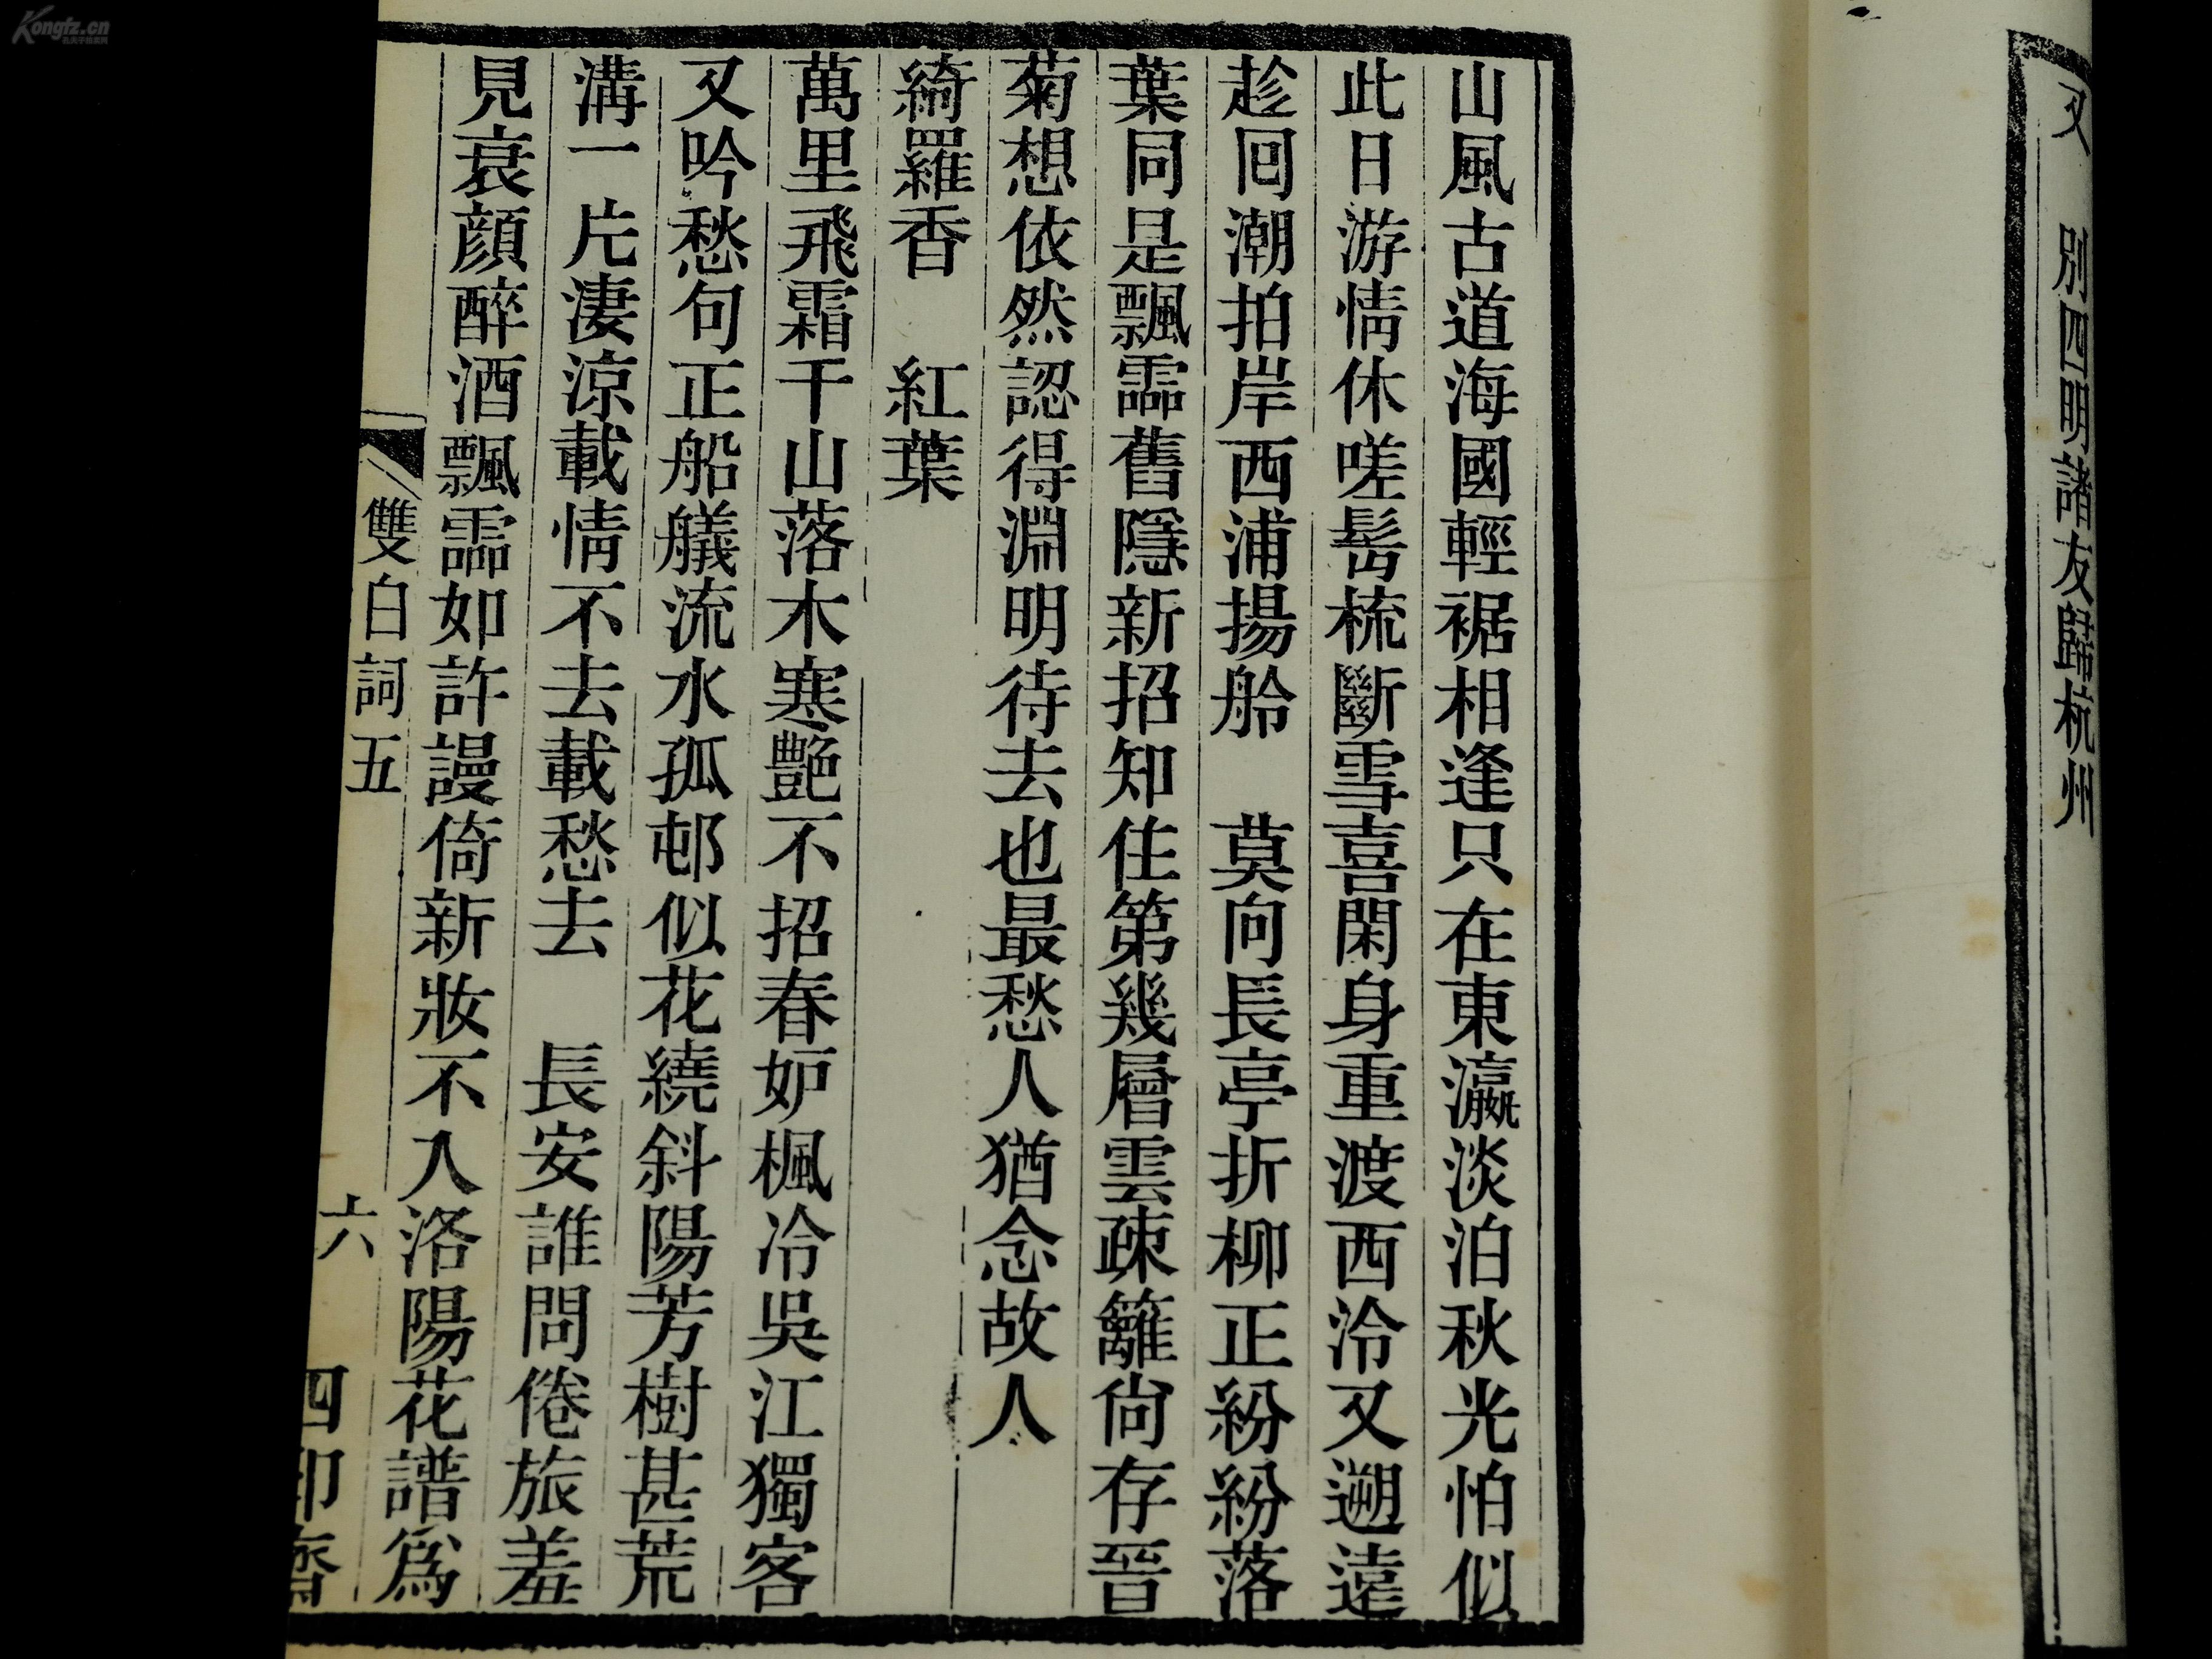 Kongfz.cn
又　別四明諸友歸杭州
山風古道海國輕裾相逢只在東瀛淡泊秋光怕似
此日游情休嗟髩梳斷雪喜閑身重渡西泠又遡遠
趁囘潮拍岸西浦揚舲　莫向長亭折柳正紛紛落
葉同是飄零舊隱新招知住第幾層雲疎籬尙存晉
菊想依然認得淵明待去也最愁人猶念故人
綺羅香　紅葉
萬里飛霜千山落木寒艷不招春妒楓冷吳江獨客
又吟愁句正船艤流水孤邨似花繞斜陽芳樹甚荒
溝一片淒涼載情不去載愁去　長安誰問倦旅羞
見衰顔醉酒飄零如許謾倚新妝不入洛陽花譜爲
雙白詞五　六　四印齋